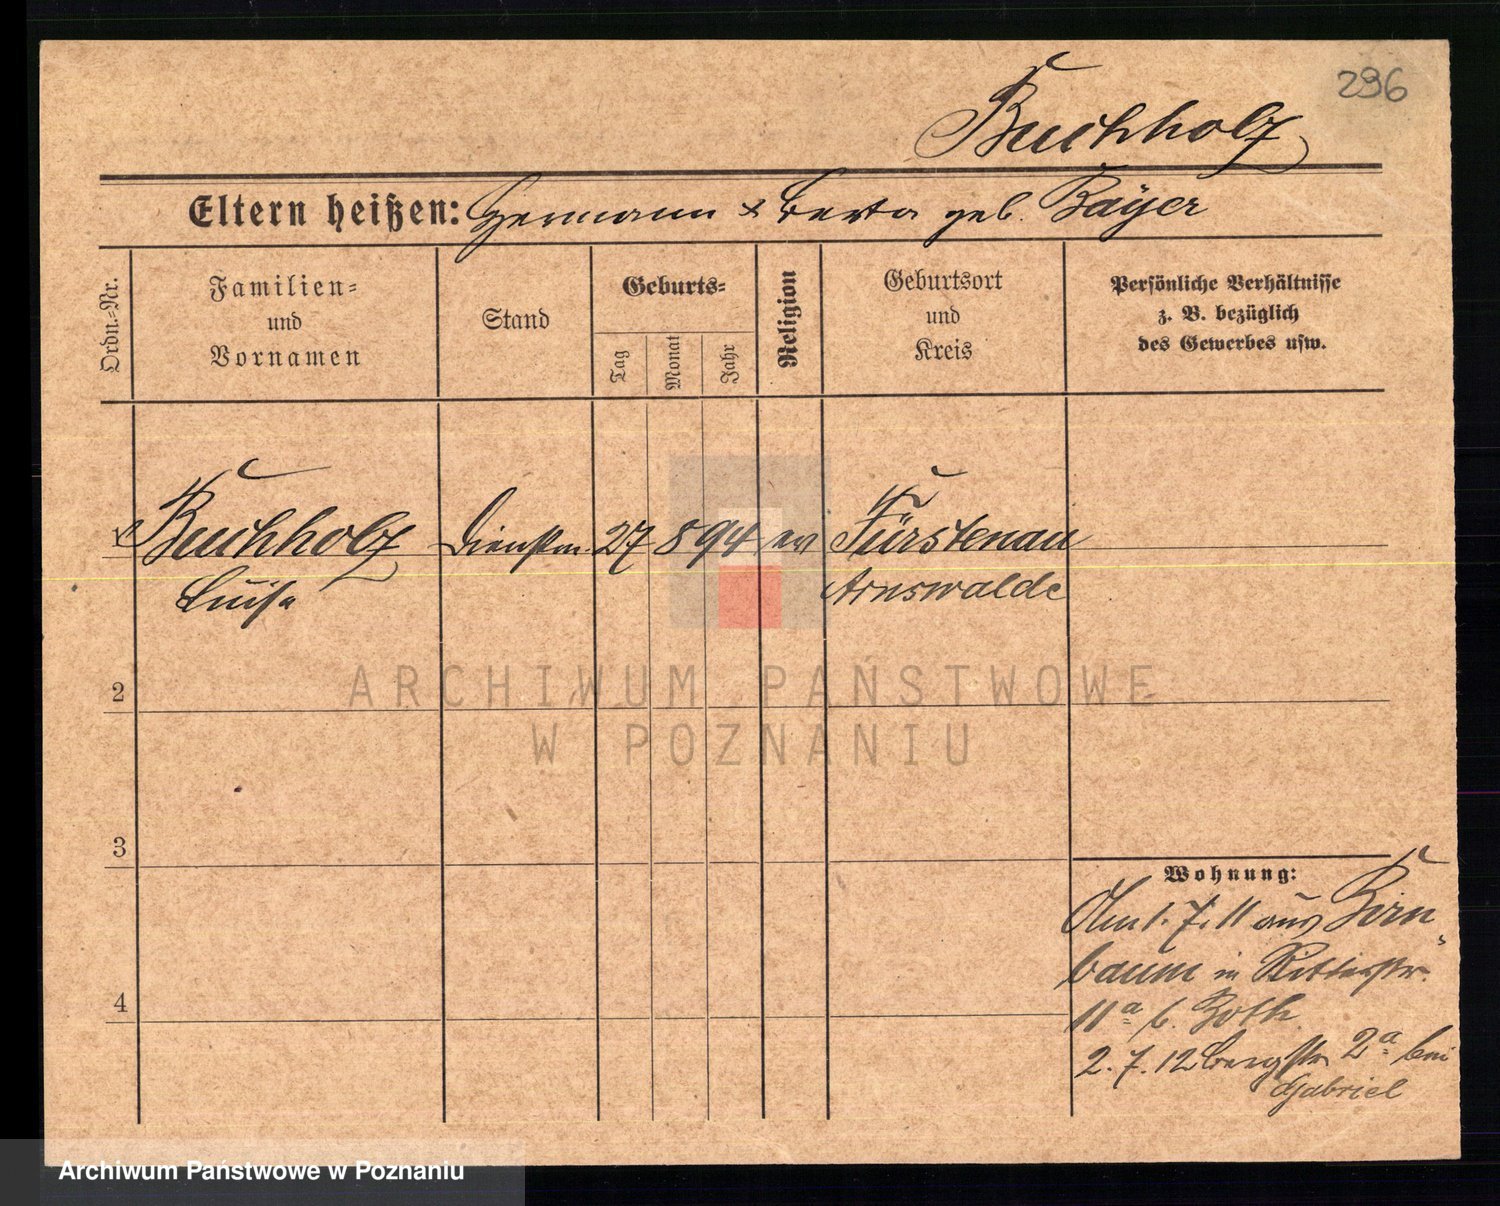 296
Buchholz
Eltern heißen: Hermann & Berta geb. Bayer
Ordn.-Nr.
Familien=
und
Vornamen
Stand
Geburts=
Tag
Monat
Jahr
Religion
Geburtsort
und
Kreis
Persönliche Verhältnisse
z. B. bezüglich
des Gewerbes usw.
1 Buchholz Dienstm. 27 8 94 ev Fürstenau
Luise Arnswalde
2
3
4
Wohnung:
Am 1. 7. 11 aus Birn-
baum in Ritterstr.
11a b.
2. 7. 12 Bergstr 2a bei
Gabriel
ARCHIWUM PAŃSTWOWE
W POZNANIU
Archiwum Państwowe w Poznaniu